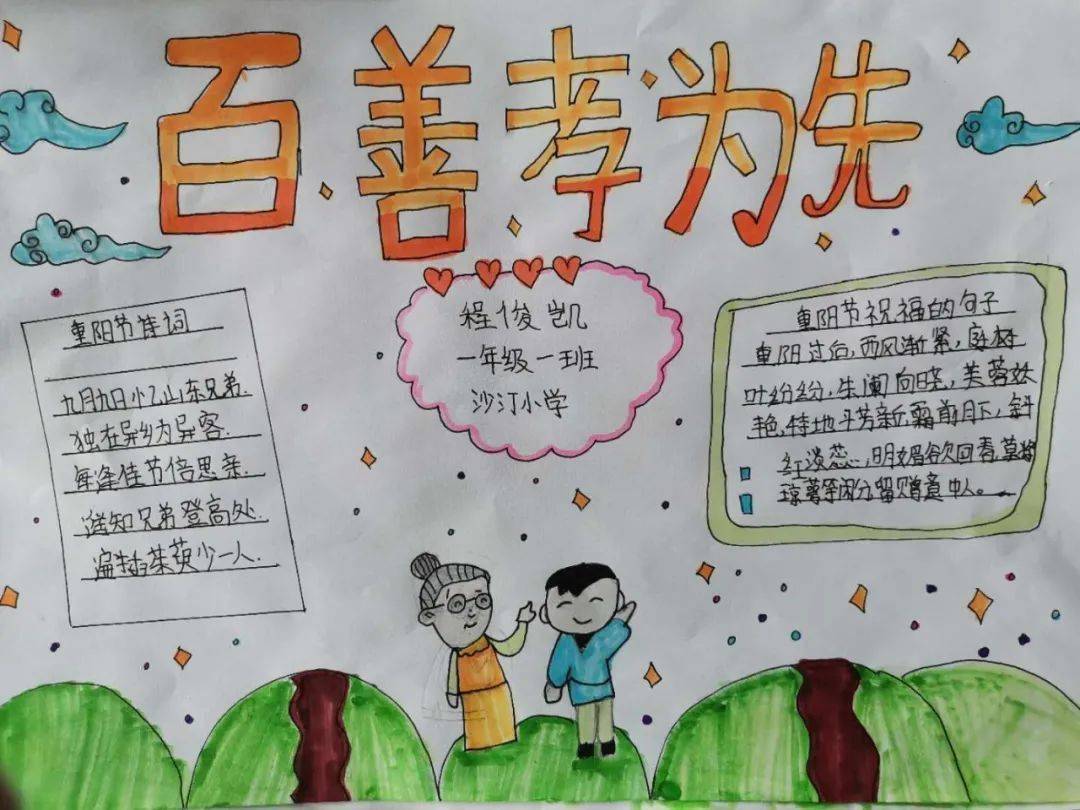 百善孝为先
重阳节诗词
九月九日忆山东兄弟.
独在异乡为异客.
每逢佳节倍思亲.
遥知兄弟登高处.
遍插茱萸少一人.
程俊凯
一年级一班
沙汀小学
重阳节祝福的句子
重阳过后,西风渐紧,庭树
叶纷纷,朱阑向晓,芙蓉妖
艳,特地斗芳新,霜前月下,斜
红淡蕊,明媚欲回春,莫将
琼萼等闲分留赠意中人。